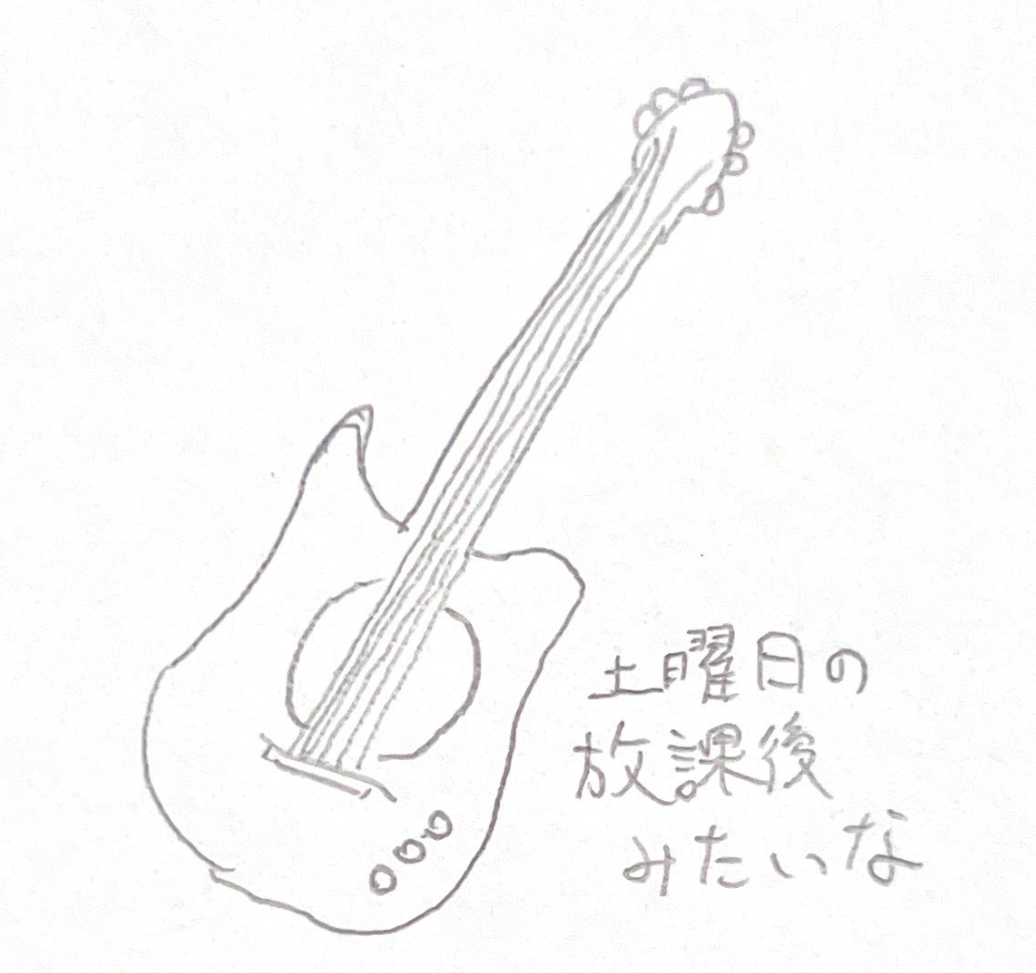 土曜日の
放課後
みたいな